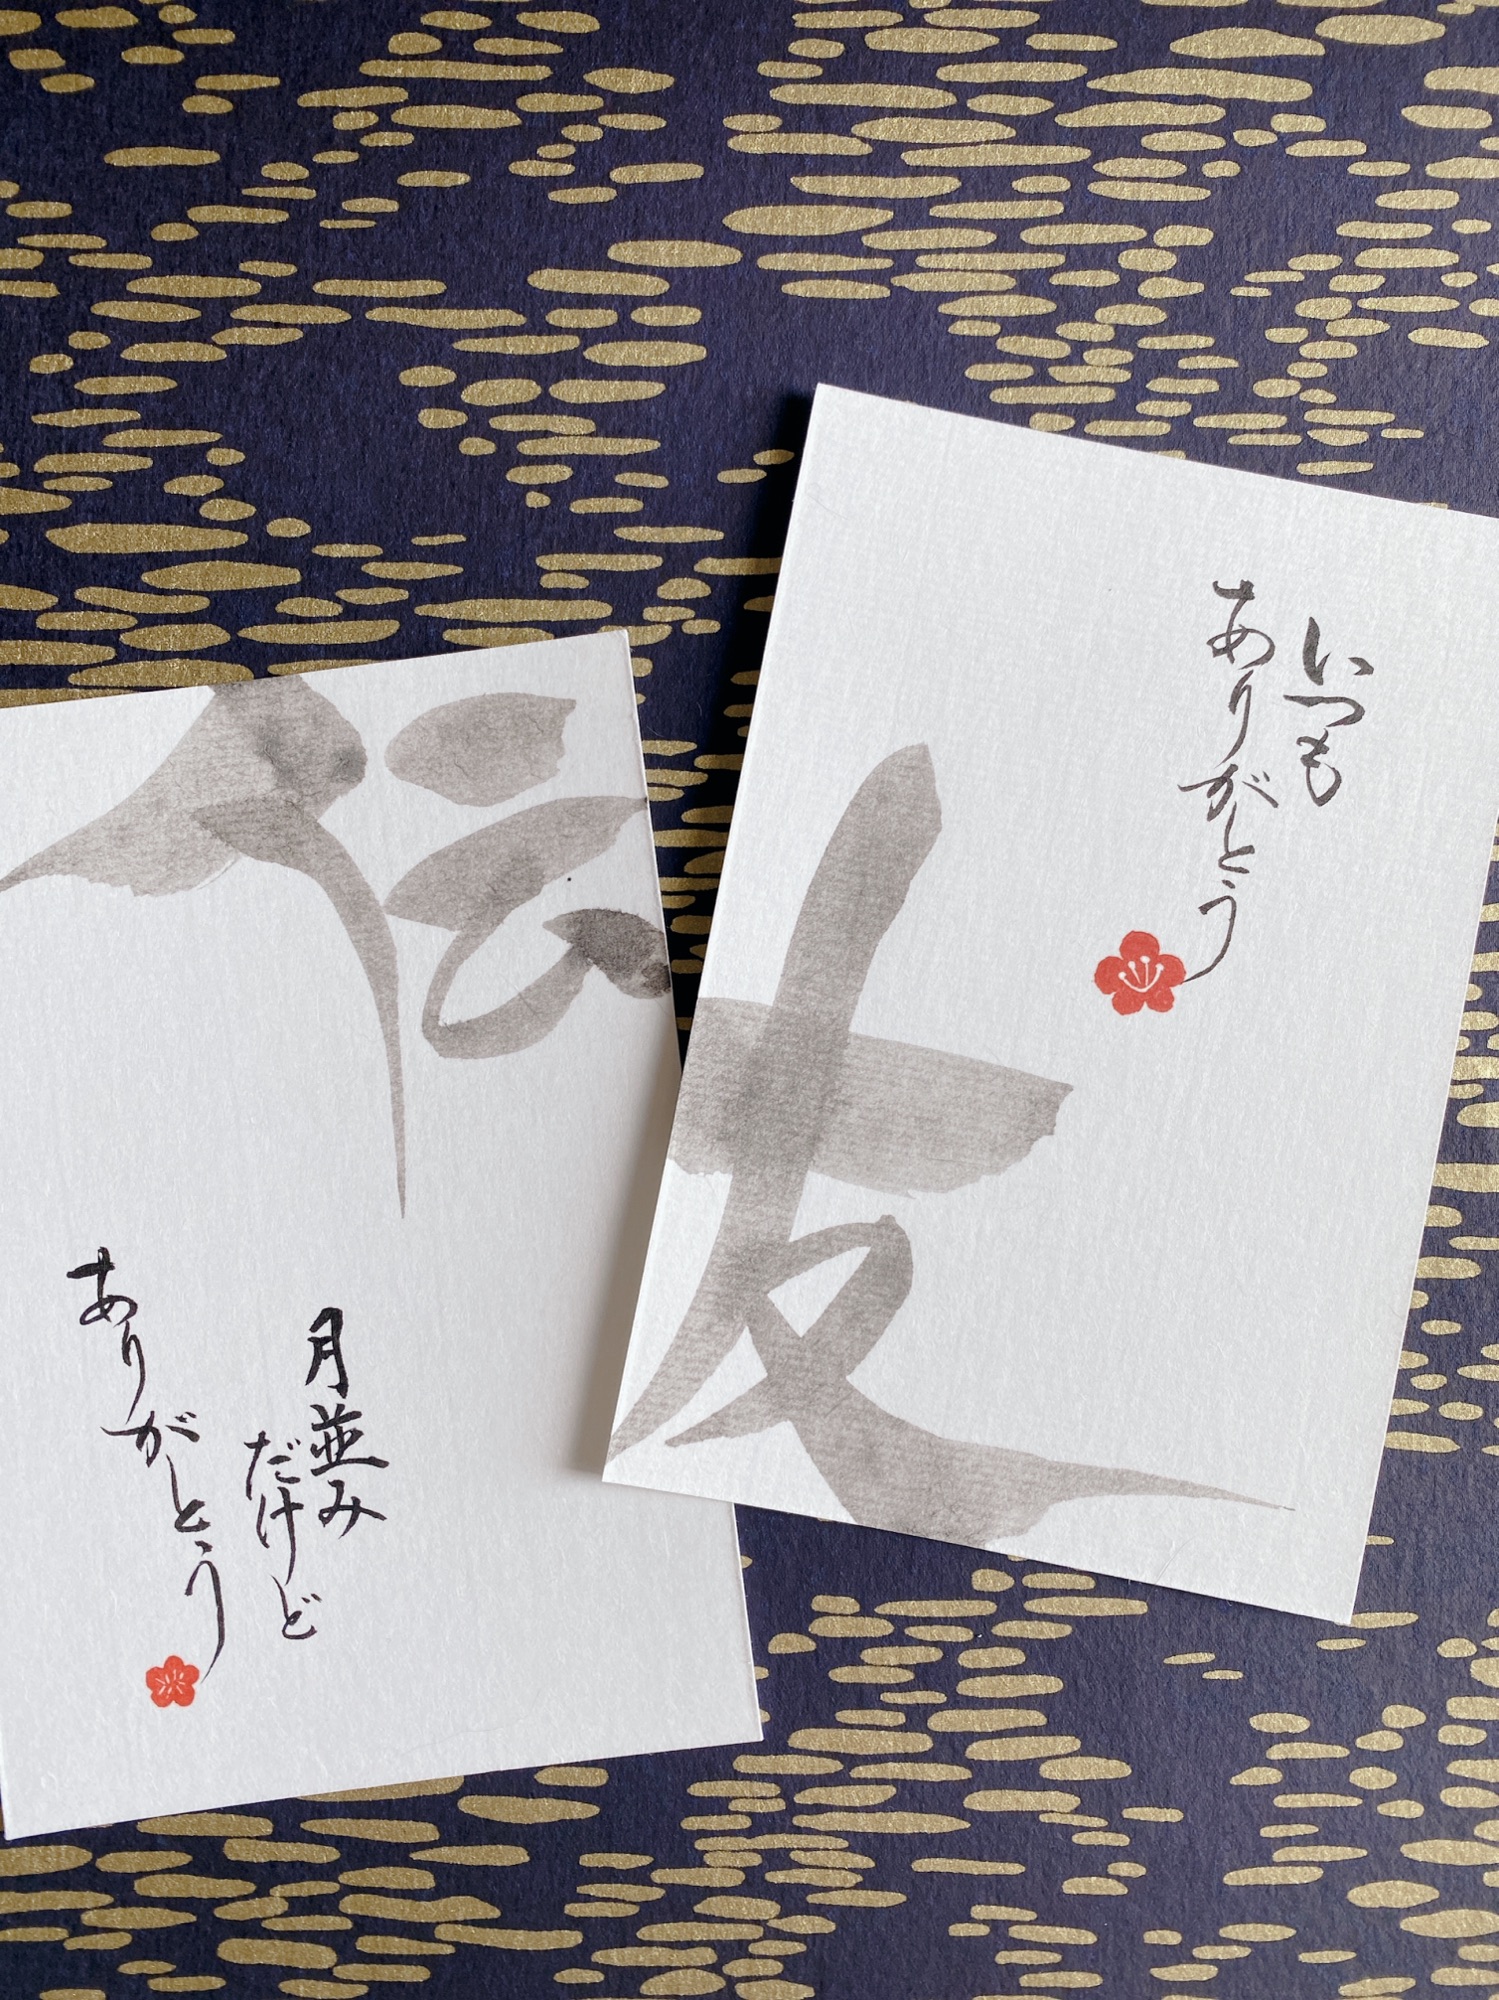 いつも
ありがとう
友
伝
月並み
だけど
ありがとう